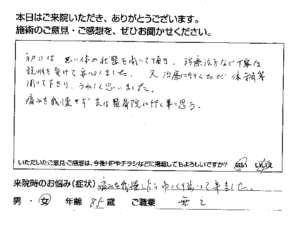 本日はご来院いただき、ありがとうございます。
施術のご意見・ご感想を、ぜひお聞かせください。
初日は 悪い体の状態を聞いて頂き、治療法など丁寧な
説明を受けて安心しました。又、治療に行くたび 体調等
聞いて下さり、うれしく思いました。
痛みを我慢せず まずは整骨院に行く事と思う。
いただいたご意見・ご感想は、今後HPやチラシなどに掲載してもよろしいですか? はい いいえ
来院時のお悩み(症状) 痛みを我慢したら 歩いて来ました。
男・女 年齢 85歳 ご職業 無し